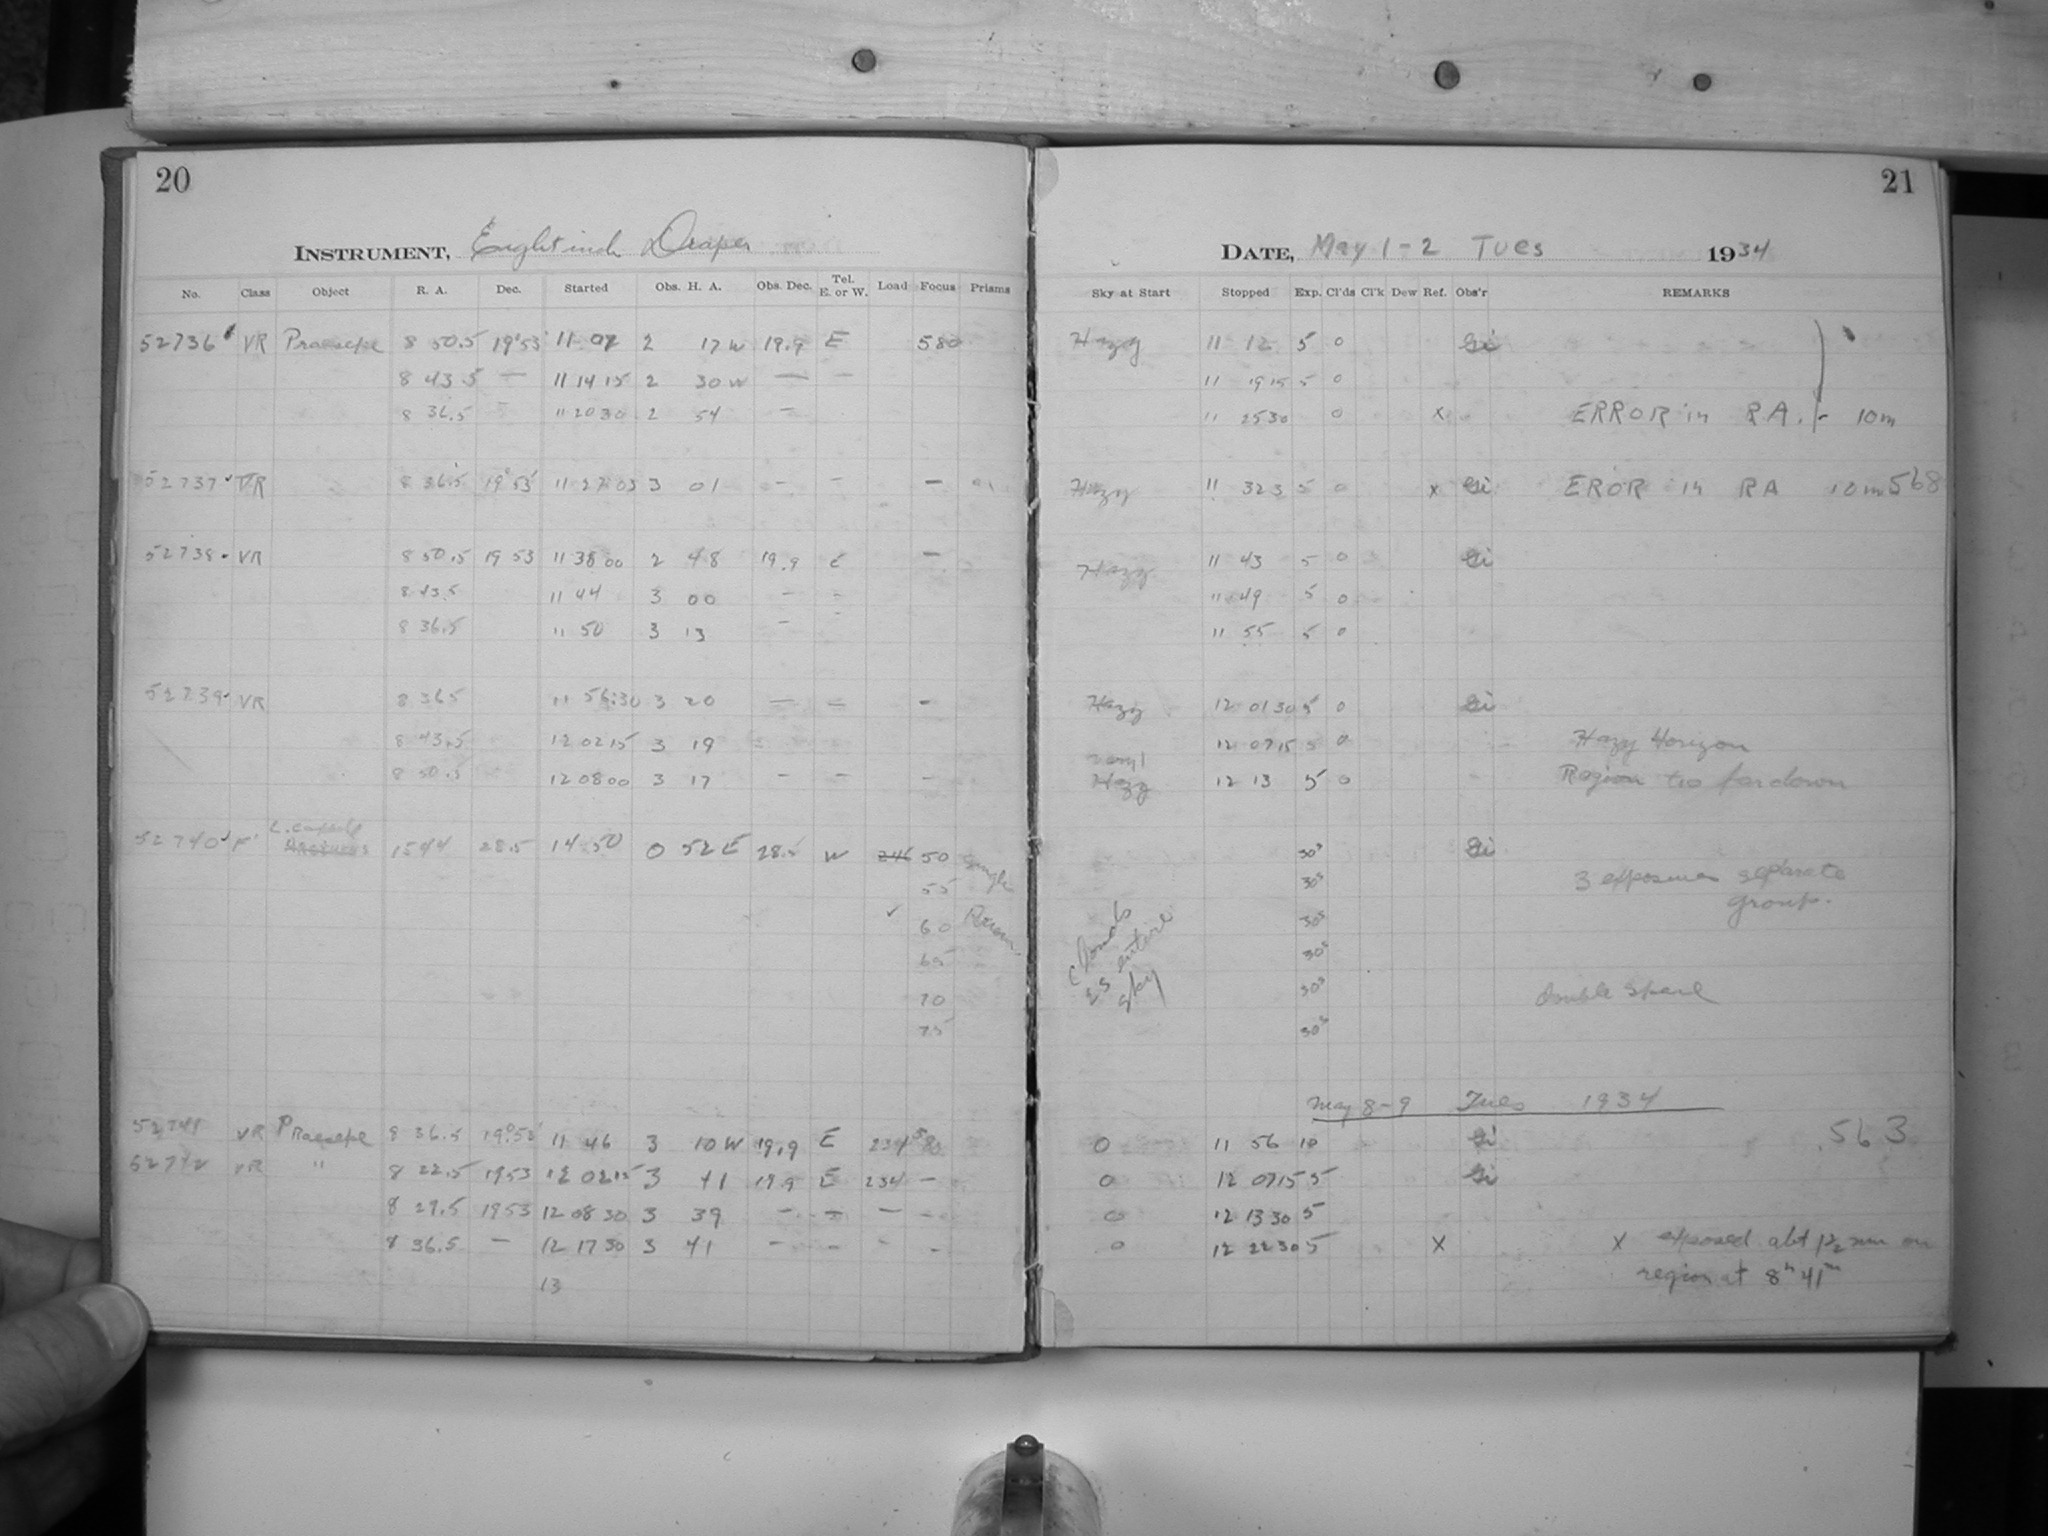 20
INSTRUMENT, Eight inch Draper
No. Class Object R. A. Dec. Started Obs. H. A. Obs. Dec. Tel. E. or W. Load Focus Prisms
52736 VR Praesepe 8 50.5 19°53' 11 07 2 17 W 19.9 E 580
8 43.5 — 11 14 15 2 30 W — —
8 36.5 — 11 20 30 2 54 —
52737 VR 8 36.5 19°53' 11 27 03 3 01 — — —
52738 VR 8 50.5 19 53 11 38 00 2 48 19.9 E —
8 43.5 11 44 3 00 — —
8 36.5 11 50 3 13 —
52739 VR 8 36.5 11 56:30 3 20 — — —
8 43.5 12 02 15 3 19
8 50.5 12 08 00 3 17 — — —
52740 F 1544 28.5 14 50 0 52 E 28.5 W 246 50 Single
55
60
65
70
75
52741 VR Praesepe 8 36.5 19°53' 11 46 3 10 W 19.9 E 234 580
52742 VR " 8 22.5 19 53 12 02 15 3 41 19.9 E 234 —
8 29.5 19 53 12 08 30 3 39 — — — —
8 36.5 — 12 17 30 3 41 — — — —
13
21
DATE, May 1-2 Tues 1934
Sky at Start Stopped Exp. Cl'ds Cl'k Dew Ref. Obs'r REMARKS
Hazy 11 12 5 0 Gi
11 19 15 5 0
11 25 30 0 x ERROR in RA. - 10m
Hazy 11 32 3 5 0 x Gi EROR in RA 10m 568
Hazy 11 43 5 0 Gi
11 49 5 0
11 55 5 0
Hazy 12 01 30 5 0 Gi
12 07 15 5 0 Hazy Horizon
Hazy 12 13 5 0 Region too far down
30s Gi
30s 3 exposures separate
group.
Clouds entire sky
30s
30s
30s Double Space
30s
May 8-9 Tues 1934
0 11 56 10 Gi .563
0 12 07 15 5 Gi
0 12 13 30 5
0 12 22 30 5 X X exposed abt 1½ mm on
region at 8h 41m